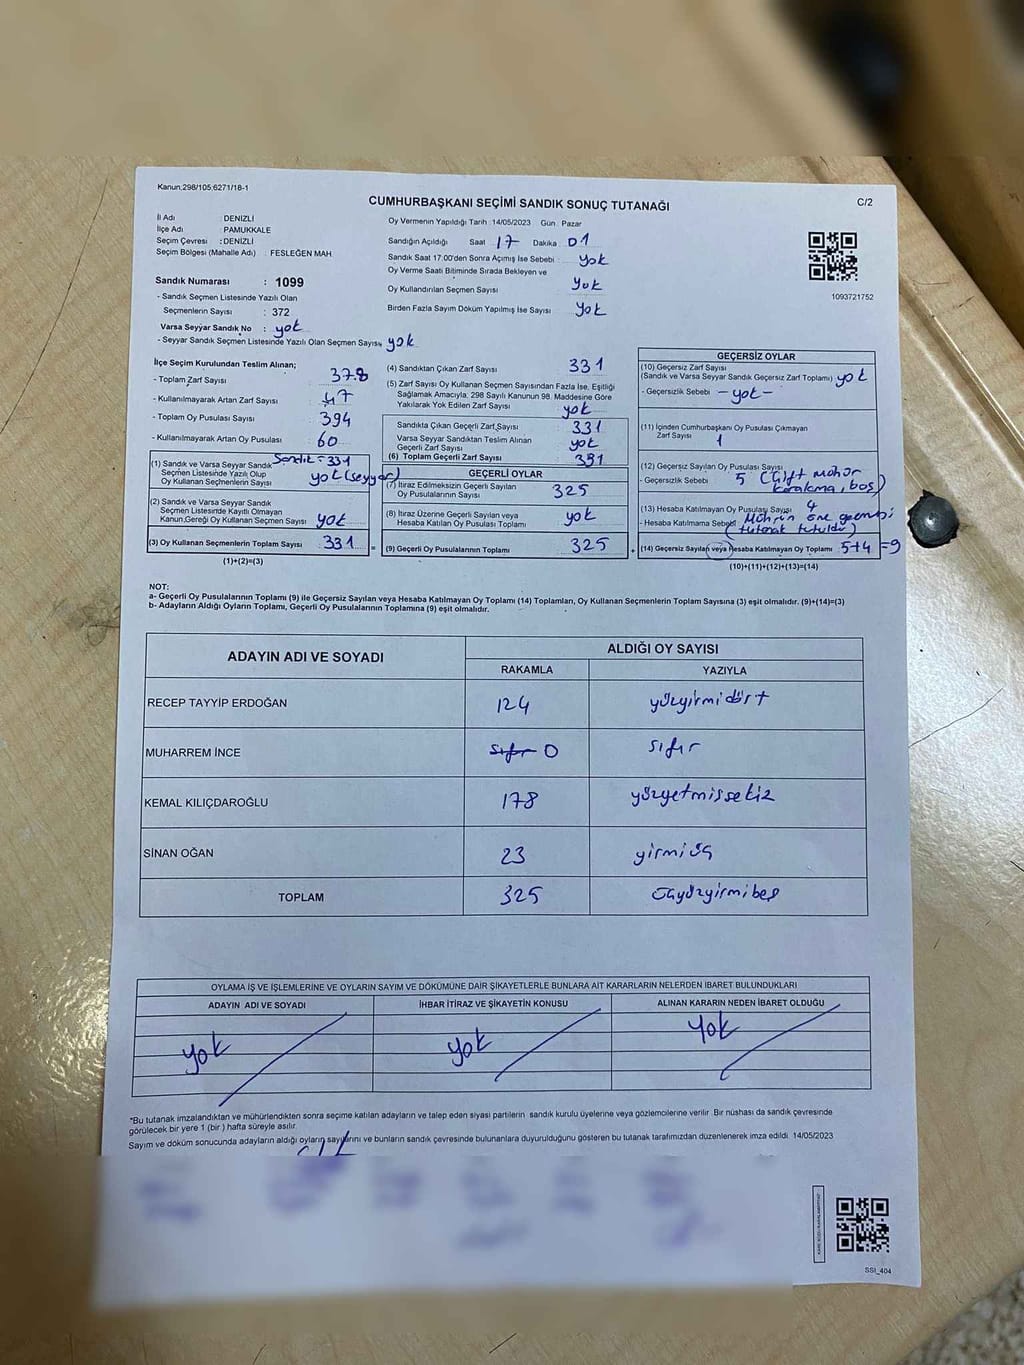 Kanun,298/105,6271/18-1
CUMHURBAŞKANI SEÇİMİ SANDIK SONUÇ TUTANAĞI
C/2
İl Adı : DENİZLİ
İlçe Adı : PAMUKKALE
Seçim Çevresi : DENİZLİ
Seçim Bölgesi (Mahalle Adı) : FESLEĞEN MAH.
Sandık Numarası : 1099
- Sandık Seçmen Listesinde Yazılı Olan
Seçmenlerin Sayısı : 372
Varsa Seyyar Sandık No : yok
- Seyyar Sandık Seçmen Listesinde Yazılı Olan Seçmen Sayısı, yok
Oy Vermenin Yapıldığı Tarih : 14/05/2023 Gün : Pazar
Sandığın Açıldığı Saat 17 Dakika 01
Sandık Saat 17.00'den Sonra Açımış İse Sebebi : yok
Oy Verme Saati Bitiminde Sırada Bekleyen ve
Oy Kullandırılan Seçmen Sayısı yok
Birden Fazla Sayım Döküm Yapılmış İse Sayısı yok
1093721752
İlçe Seçim Kurulundan Teslim Alınan;
- Toplam Zarf Sayısı 378
- Kullanılmayarak Artan Zarf Sayısı 47
- Toplam Oy Pusulası Sayısı 394
- Kullanılmayarak Artan Oy Pusulası 60
(1) Sandık ve Varsa Seyyar Sandık Sandık = 331
Seçmen Listesinde Yazılı Olup
Oy Kullanan Seçmenlerin Sayısı yok (seyyar)
(2) Sandık ve Varsa Seyyar Sandık
Seçmen Listesinde Kayıtlı Olmayan
Kanun Gereği Oy Kullanan Seçmen Sayısı yok
(3) Oy Kullanan Seçmenlerin Toplam Sayısı 331 =
(1)+(2)=(3)
(4) Sandıktan Çıkan Zarf Sayısı 331
(5) Zarf Sayısı Oy Kullanan Seçmen Sayısından Fazla İse, Eşitliği
Sağlamak Amacıyla, 298 Sayılı Kanunun 98. Maddesine Göre
Yakılarak Yok Edilen Zarf Sayısı yok
Sandıkta Çıkan Geçerli Zarf Sayısı 331
Varsa Seyyar Sandıktan Teslim Alınan
Geçerli Zarf Sayısı yok
(6) Toplam Geçerli Zarf Sayısı 331
GEÇERLİ OYLAR
(7) İtiraz Edilmeksizin Geçerli Sayılan
Oy Pusulalarının Sayısı 325
(8) İtiraz Üzerine Geçerli Sayılan veya
Hesaba Katılan Oy Pusulası Toplamı yok
(9) Geçerli Oy Pusulalarının Toplamı 325 +
GEÇERSİZ OYLAR
(10) Geçersiz Zarf Sayısı
(Sandık ve Varsa Seyyar Sandık Geçersiz Zarf Toplamı) yok
- Geçersizlik Sebebi - yok -
(11) İçinden Cumhurbaşkanı Oy Pusulası Çıkmayan
Zarf Sayısı 1
(12) Geçersiz Sayılan Oy Pusulası Sayısı
- Geçersizlik Sebebi 5 (Çift mühür karalama, boş)
(13) Hesaba Katılmayan Oy Pusulası Sayısı 4
- Hesaba Katılmama Sebebi Mührün öne geçmesi
(tutanak tutuldu)
(14) Geçersiz Sayılan veya Hesaba Katılmayan Oy Toplamı 5+4=9
(10)+(11)+(12)+(13)=(14)
NOT:
a- Geçerli Oy Pusulalarının Toplamı (9) ile Geçersiz Sayılan veya Hesaba Katılmayan Oy Toplamı (14) Toplamları, Oy Kullanan Seçmenlerin Toplam Sayısına (3) eşit olmalıdır. (9)+(14)=(3)
b- Adayların Aldığı Oyların Toplamı, Geçerli Oy Pusulalarının Toplamına (9) eşit olmalıdır.
ADAYIN ADI VE SOYADI
ALDIĞI OY SAYISI
RAKAMLA YAZIYLA
RECEP TAYYİP ERDOĞAN 124 yüzyirmidört
MUHARREM İNCE sıfır 0 sıfır
KEMAL KILIÇDAROĞLU 178 yüzyetmişsekiz
SİNAN OĞAN 23 yirmiüç
TOPLAM 325 üçyüzyirmibeş
OYLAMA İŞ VE İŞLEMLERİNE VE OYLARIN SAYIM VE DÖKÜMÜNE DAİR ŞİKAYETLERLE BUNLARA AİT KARARLARIN NELERDEN İBARET BULUNDUKLARI
ADAYIN ADI VE SOYADI İHBAR İTİRAZ VE ŞİKAYETİN KONUSU ALINAN KARARIN NEDEN İBARET OLDUĞU
yok yok yok
*Bu tutanak imzalandıktan ve mühürlendikten sonra seçime katılan adayların ve talep eden siyasi partilerin sandık kurulu üyelerine veya gözlemcilerine verilir. Bir nüshası da sandık çevresinde
görülecek bir yere 1 (bir) hafta süreyle asılır.
Sayım ve döküm sonucunda adayların aldığı oyların sayılarını ve bunların sandık çevresinde bulunanlara duyurulduğunu gösteren bu tutanak tarafımızdan düzenlenerek imza edildi. 14/05/2023
SSI_404